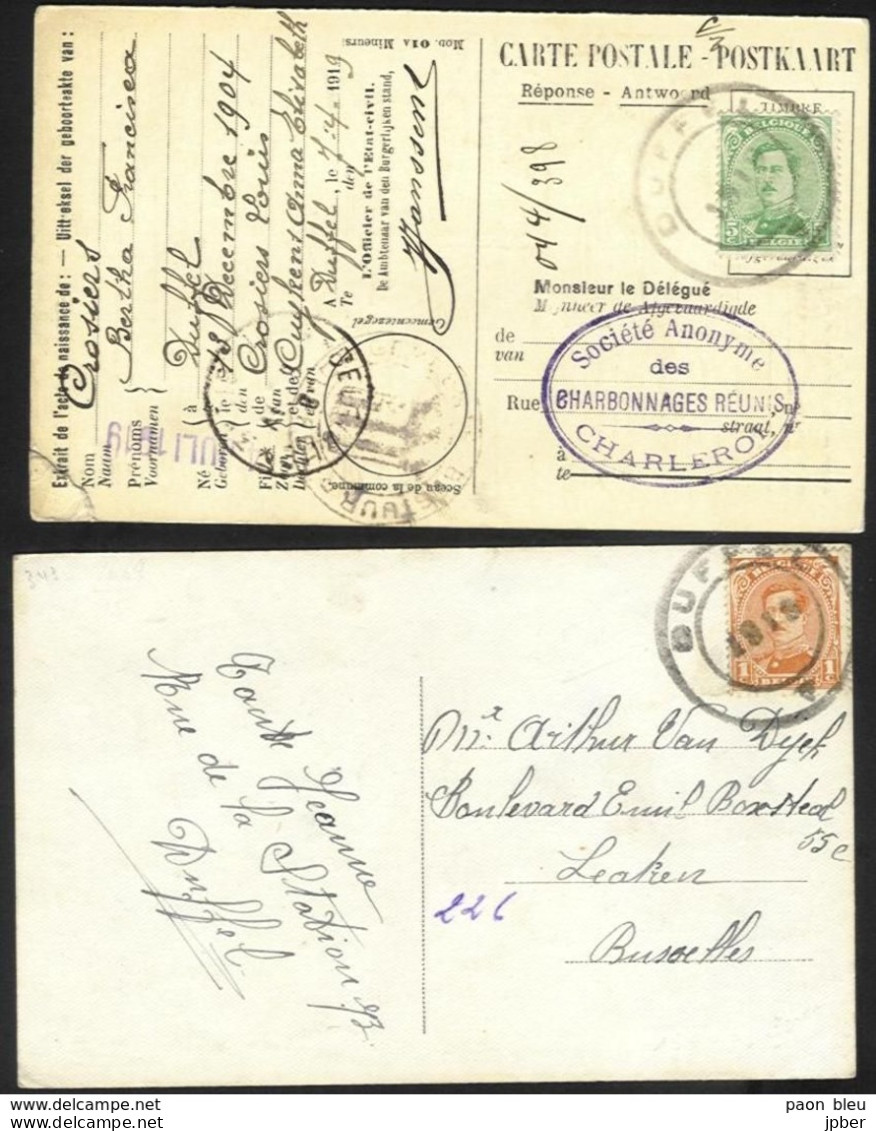 Extrait de l'acte de naissance de : — Uittreksel der geboorteakte van :
Crosiers
Nom
Naam
Bertha Francisca
Prénoms
Voornamen
Né
Geboren
à
te
Duffel
le
den
18 Décembre 1904
de
van
Crosiers Louis
et de
en van
Cuykens Anna Elisabeth
A
Te
Duffel, le 7-4- 1919
den
L'Officier de l'Etat-civil.
De Ambtenaar van den Burgerlijken stand,
Janssens
Mod. 01A Mineurs.
Gemeentezegel
Sceau de la commune.
JULI 1919
CARTE POSTALE - POSTKAART
Réponse - Antwoord
TIMBRE
DUFFEL
BELGIQUE
5
BELGIE
044/398
Monsieur le Délégué
Mijnheer de Afgevaardigde
de
van
Rue
straat, nr
à
te
Société Anonyme
des
CHARBONNAGES RÉUNIS
CHARLEROI
343
Tante Jeanne
Rue de la Station 93
Duffel
DUFFEL
1919
BELGIQUE
1
Mr Arthur Van Dijck
Boulevard Emil Boxstael
55c
Leaken
226
Bruxelles
paon bleu
jpber